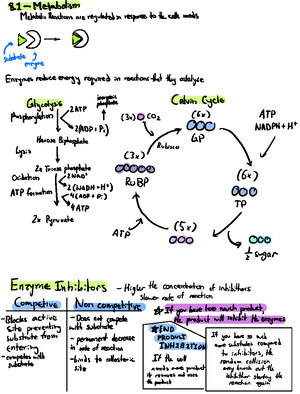 8.1 - Metabolism
Metabolic Reactions are regulated in response to the cells needs
substrate
enzyme
Enzymes reduce energy required in reactions that they catalyse
Glycolysis
Phosphorylation
2ATP
inorganic phosphate
2(ADP + Pi)
Hexose Biphosphate
Lysis
2x Triose phosphate
Oxidation
2NAD+
2(NADH + H+)
ATP formation
4(ADP + Pi)
4 ATP
2x Pyruvate
Calvin Cycle
(3x) CO2
Rubisco
(6x)
GP
ATP
NADPH + H+
(6x)
TP
1/2 sugar
(5x)
ATP
(3x)
RuBP
Enzyme Inhibitors - Higher the concentration of inhibitors
slower rate of reaction
Competitive
- Blocks active
site preventing
substrate from
entering
- competes with
substrate
Non competitive
- Does not compete
with substrate
- permanent decrease
in rate of reaction
- binds to allosteric
site
If you have too much product,
the product will inhibit the enzymes
END
PRODUCT
INHIBITION
If the cell
needs more product
it removes and uses
the product
If you have so much
more substrates compared
to inhibitors, the
random collision
may knock out the
inhibitor starting the
reaction again